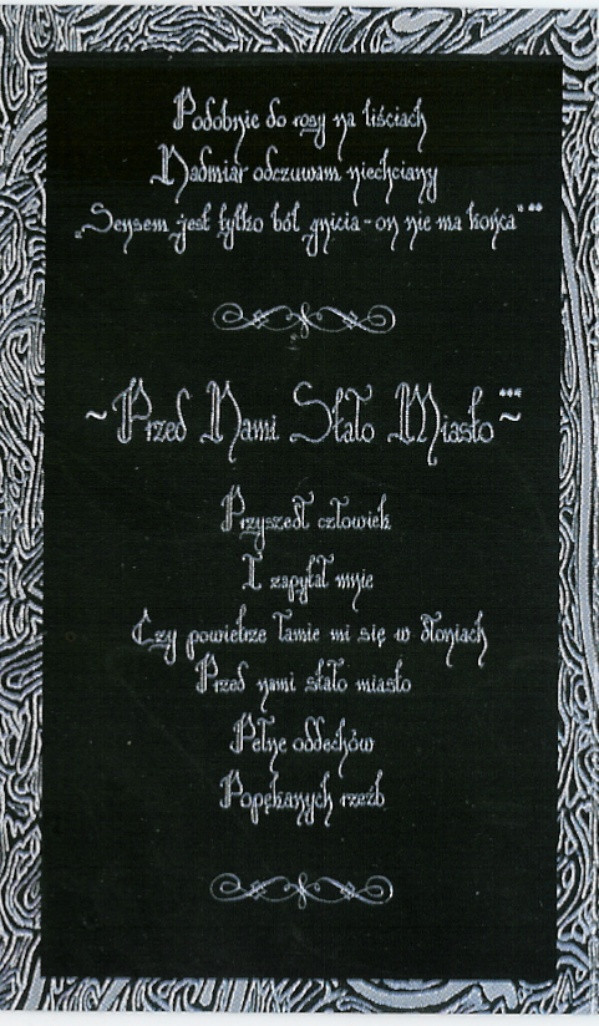 Podobnie do rosy na liściach
Nadmiar odczuwam niechciany
„Sensem jest tylko ból gnicia - on nie ma końca" **
~ Przed Nami Stało Miasto *** ~
Przyszedł człowiek
I zapytał mnie
Czy powietrze łamie mi się w dłoniach
Przed nami stało miasto
Pełne oddechów
Popękanych rzeźb